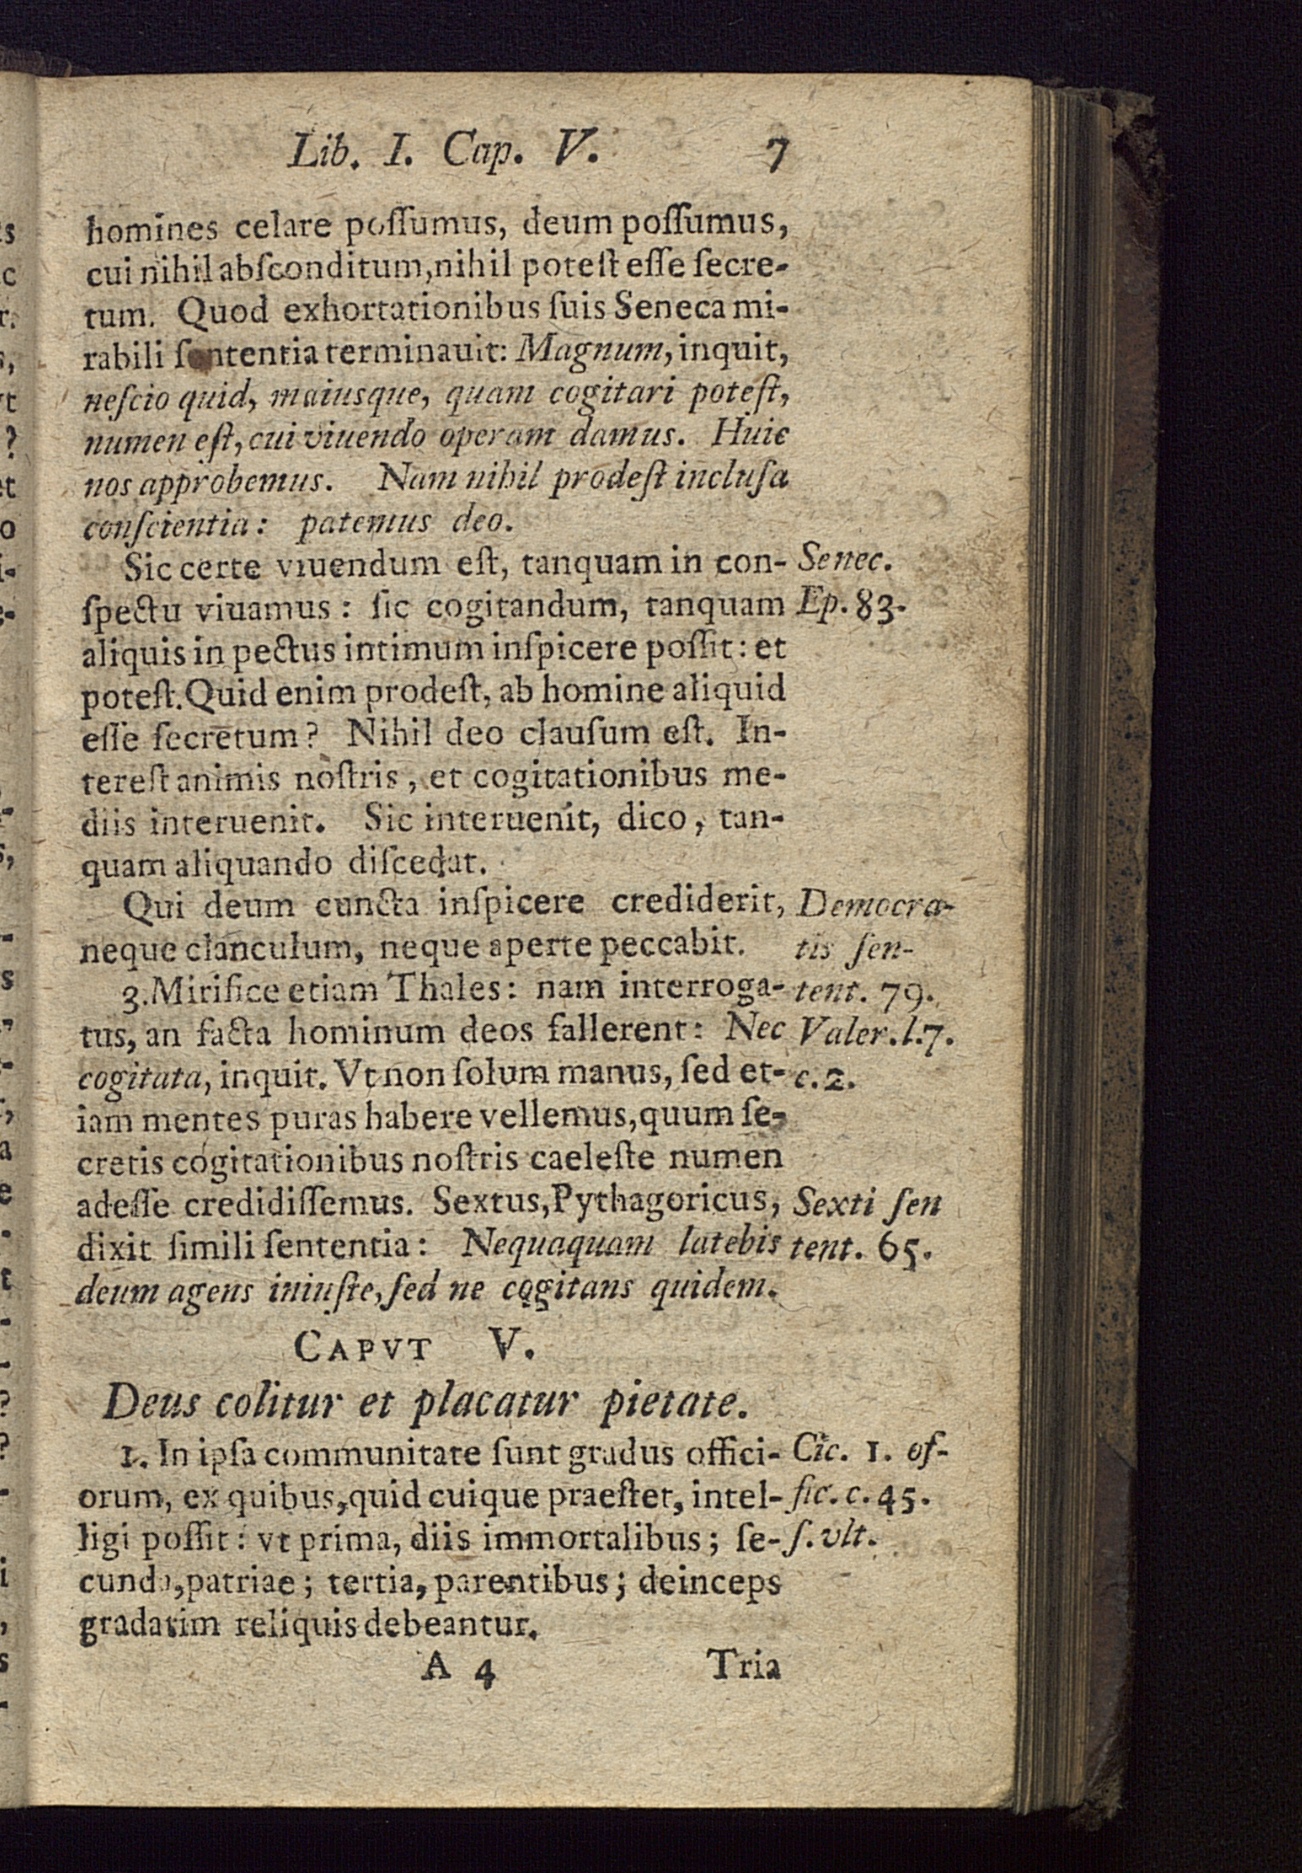 Lib. I. Cap. V. 7
homines celare poſſumus, deum poſſumus,
cui nihil abſconditum, nihil poteſt eſſe ſecre-
tum. Quod exhortationibus ſuis Seneca mi-
rabili ſententia terminauit: Magnum, inquit,
neſcio quid, maiusque, quam cogitari poteſt,
numen eſt, cui viuendo operam damus. Huic
nos approbemus. Nam nihil prodeſt incluſa
conſcientia: patemus deo.
Sic certe viuendum eſt, tanquam in con- Senec.
ſpectu viuamus: ſic cogitandum, tanquam Ep. 83.
aliquis in pectus intimum inſpicere poſſit: et
poteſt. Quid enim prodeſt, ab homine aliquid
eſſe ſecretum? Nihil deo clauſum eſt. In-
tereſt animis noſtris, et cogitationibus me-
diis interuenit. Sic interuenit, dico, tan-
quam aliquando diſcedat.
Qui deum cuncta inſpicere crediderit, Democra-
neque clanculum, neque aperte peccabit. tis ſen-
3. Mirifice etiam Thales: nam interroga- tent. 79.
tus, an facta hominum deos fallerent: Nec Valer. l. 7.
cogitata, inquit. Vt non ſolum manus, ſed et- c. 2.
iam mentes puras habere vellemus, quum ſe-
cretis cogitationibus noſtris caeleſte numen
adeſſe credidiſſemus. Sextus, Pythagoricus, Sexti ſen
dixit ſimili ſententia: Nequaquam latebis tent. 65.
deum agens iniuſte, ſed ne cogitans quidem.
CAPVT V.
Deus colitur et placatur pietate.
1. In ipſa communitate ſunt gradus offici- Cic. 1. of-
orum, ex quibus, quid cuique praeſtet, intel- fic. c. 45.
ligi poſſit: vt prima, diis immortalibus; ſe- ſ. vlt.
cunda, patriae; tertia, parentibus; deinceps
gradatim reliquis debeantur.
A 4 Tria